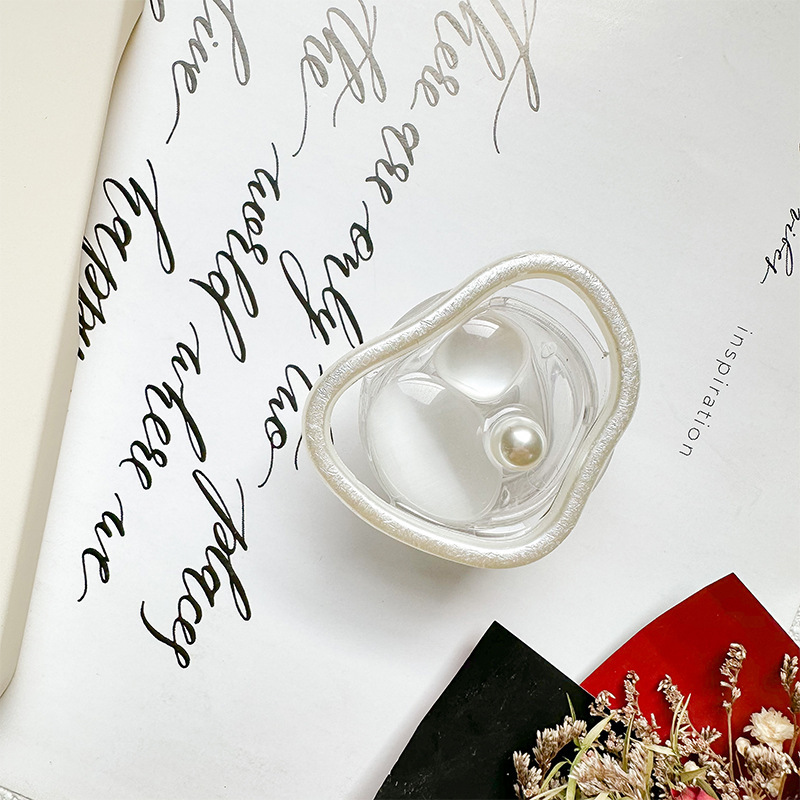 There are only two places
the world where we
live happy
vibes
inspiration